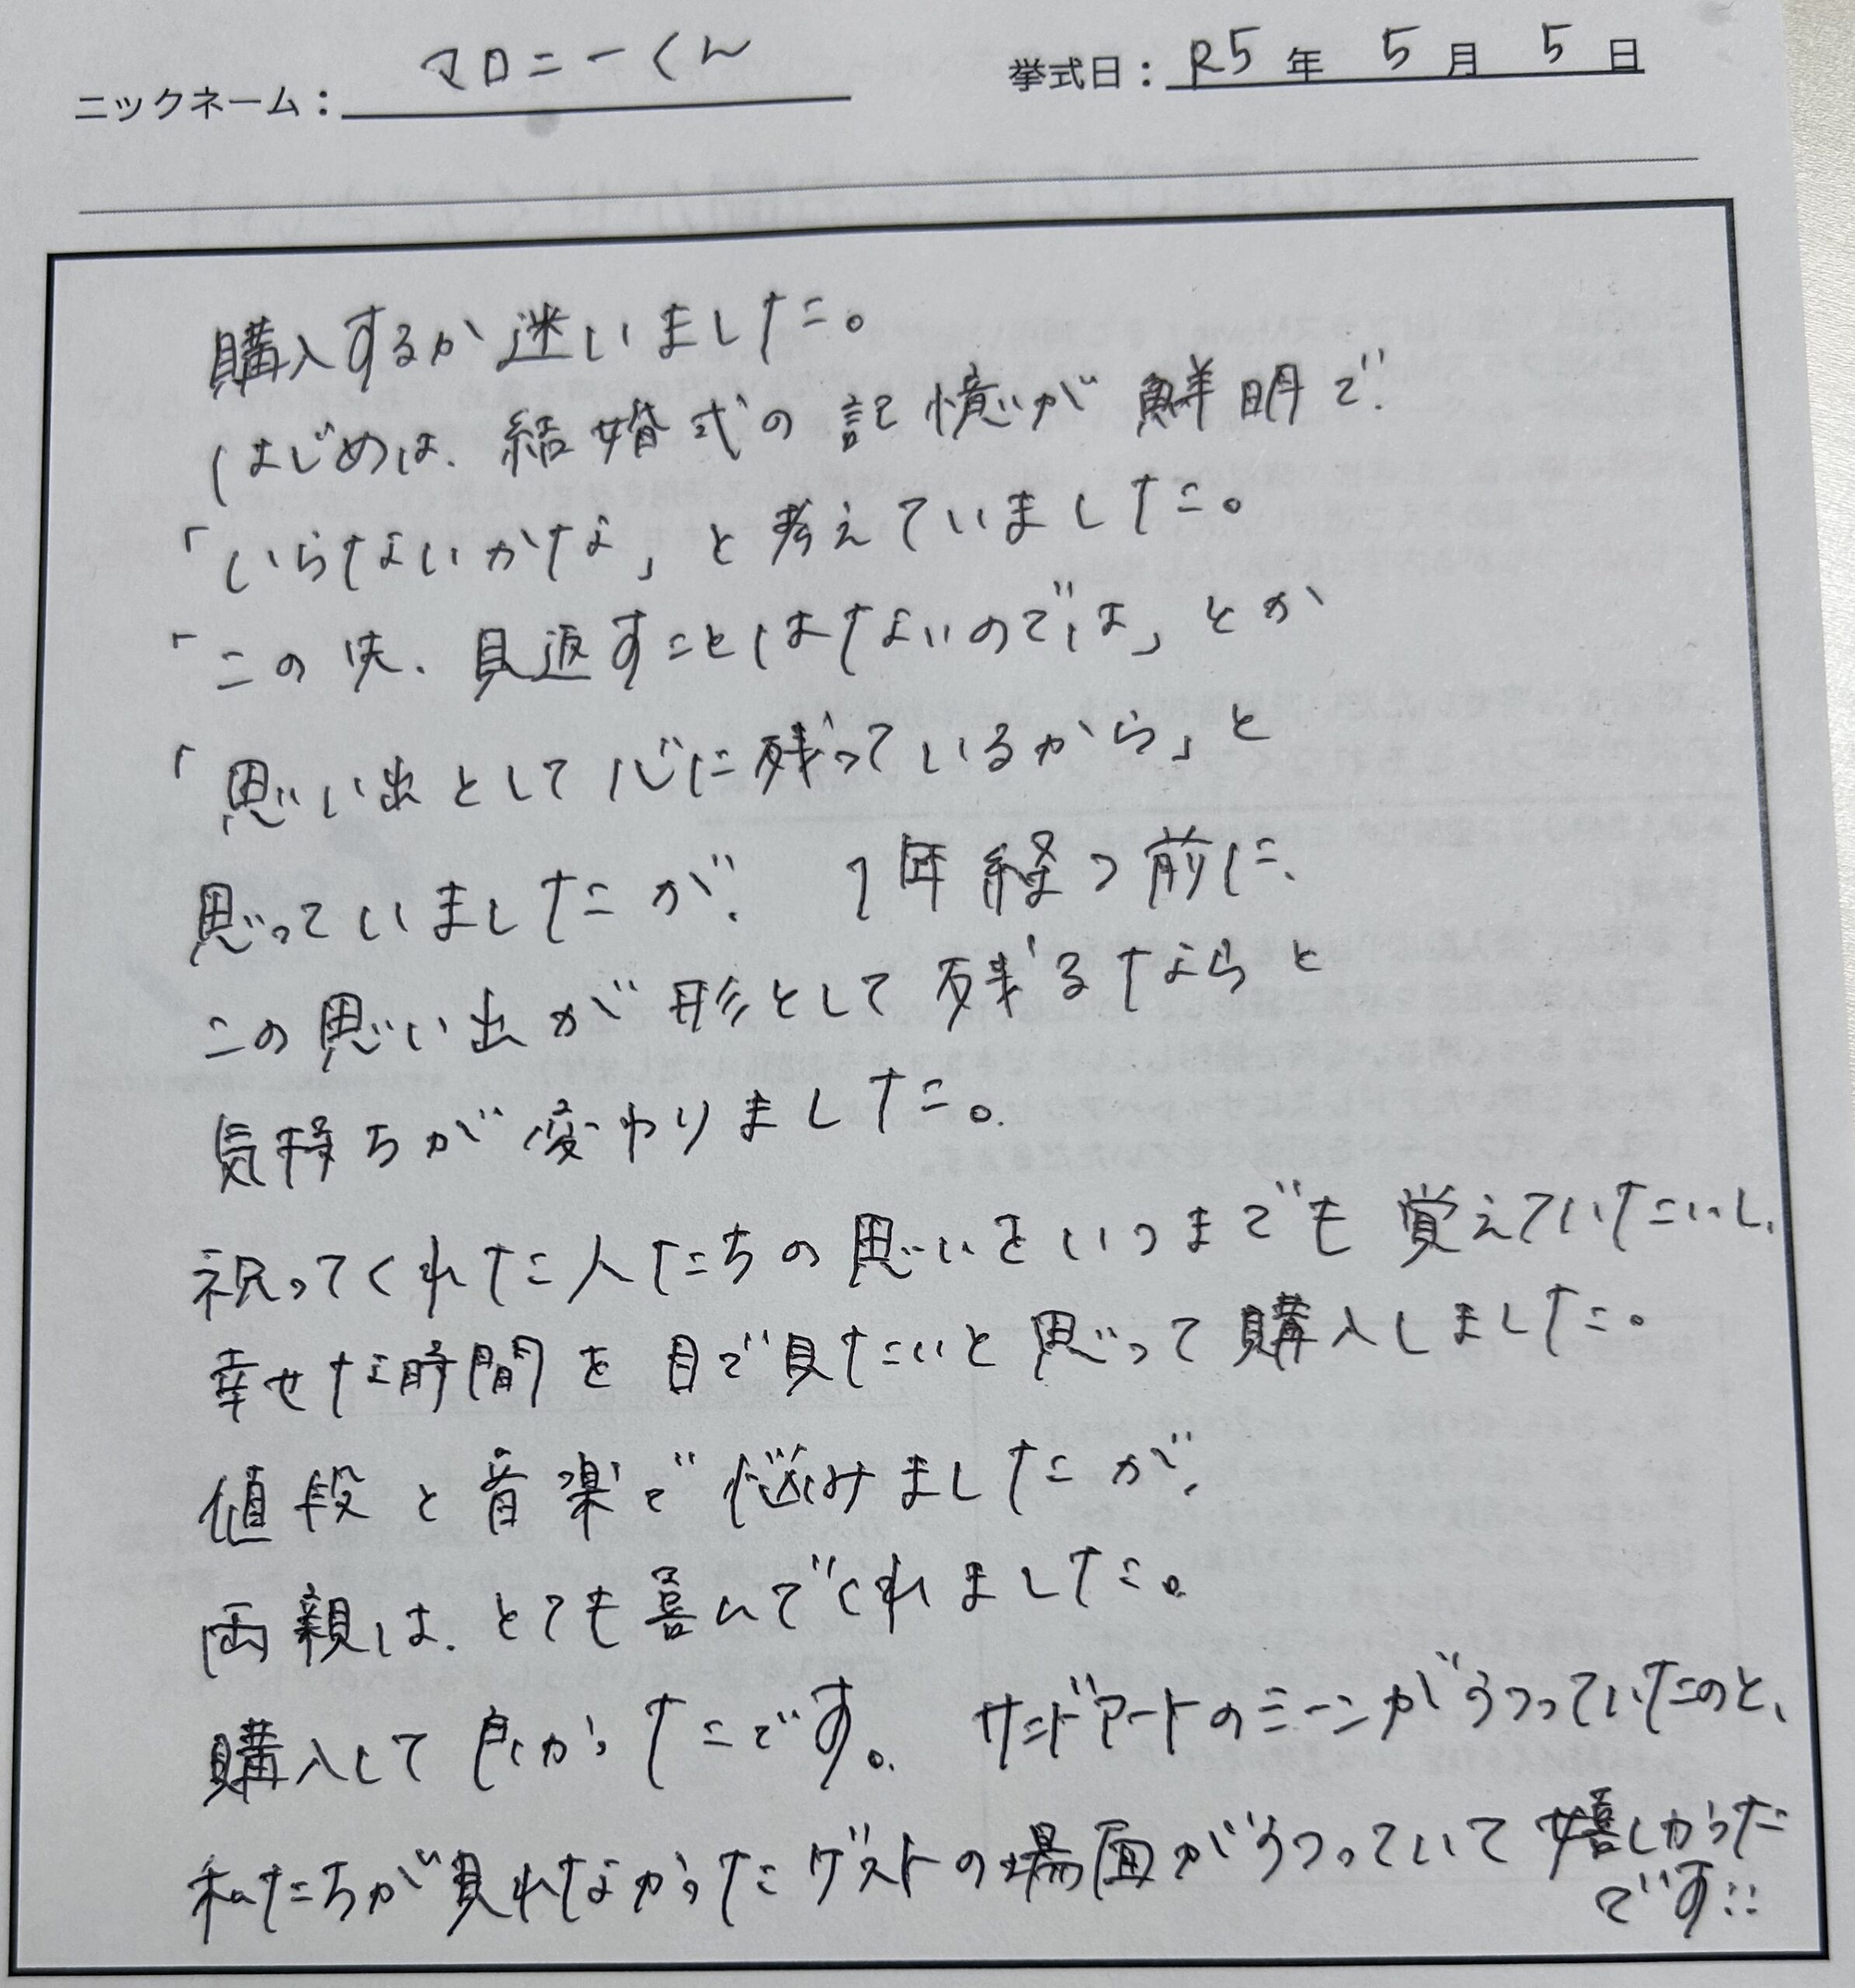 ニックネーム： マロニーくん 挙式日： R5 年 5 月 5 日
購入するか迷いました。
はじめは、結婚式の記憶が鮮明で、
「いらないかな」と考えていました。
「この先、見返すことはないのでは」とか
「思い出として心に残っているから」と
思っていましたが、1年経つ前に、
この思い出が形として残るならと
気持ちが変わりました。
祝ってくれた人たちの思いをいつまでも覚えていたいし、
幸せな時間を目で見たいと思って購入しました。
値段と音楽で悩みましたが、
両親は、とても喜んでくれました。
購入して良かったです。 サンドアートのシーンがうつっていたのと、
私たちが見れなかったゲストの場面がうつっていて嬉しかった
です::